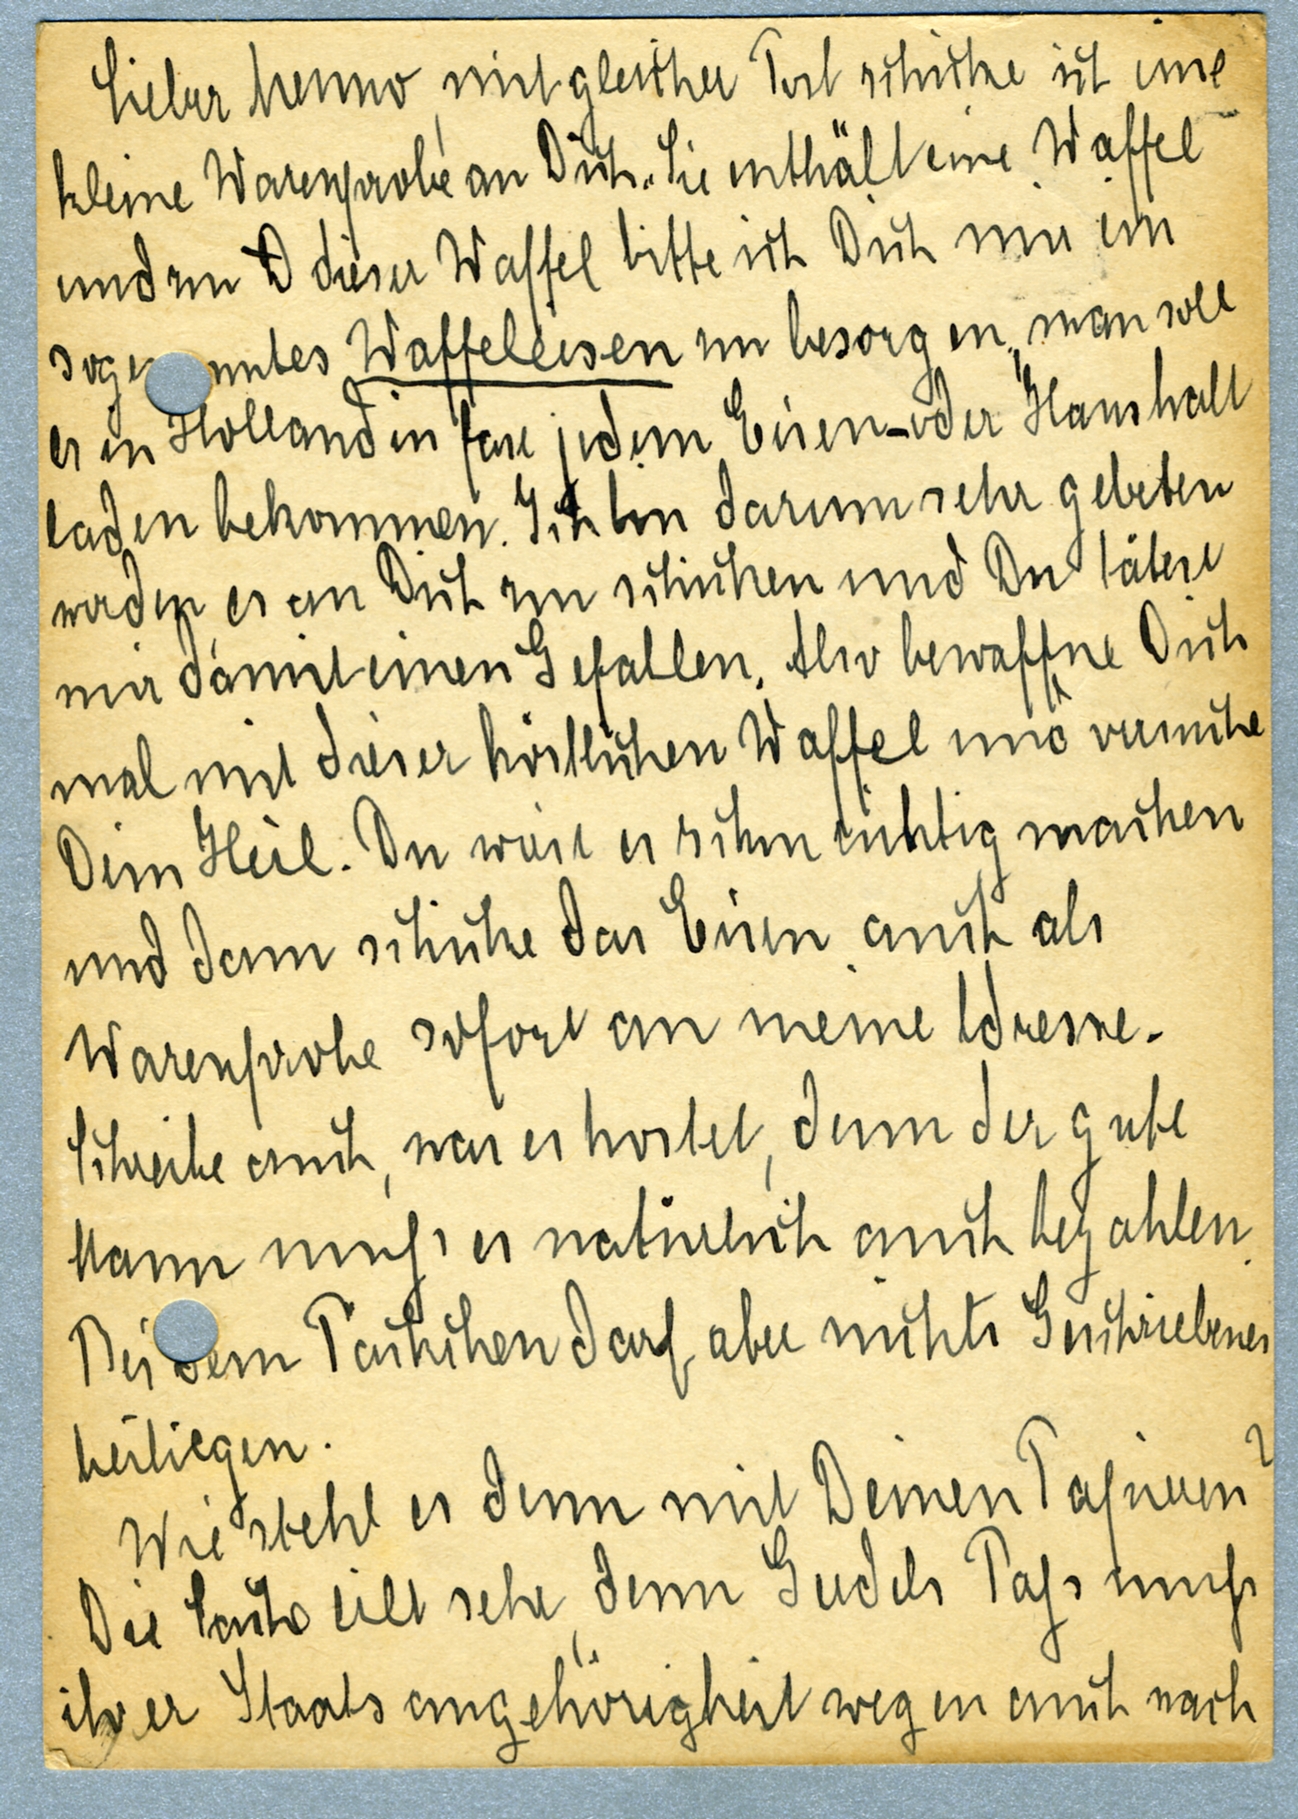 Lieber Menno, mit gleicher Post schicke ich eine
kleine Warenprobe an Dich. Sie enthält eine Waffel
und zu D dieser Waffel bitte ich Dich mir ein
soge nntes Waffeleisen zu besorgen, man soll
es in Holland in fast jedem Eisen- oder Haushalt
laden bekommen. Ich bin darum sehr gebeten
worden, es an Dich zu schicken und Du tätest
mir damit einen Gefallen. Also bewaffne Dich
mal mit dieser köstlichen Waffel und versuche
Dein Heil. Du wirst es schon richtig machen
und dann schicke das Eisen auch als
Warenprobe sofort an meine Adresse.
Schreibe auch, was es kostet, denn der gute
Mann muss es natürlich auch bezahlen.
Bei dem Päckchen darf aber nichts Geschriebenes
beiliegen.
Wie steht es denn mit Deinen Papieren?
Die Sache eilt sehr, denn Gudels Pass muss
ihrer Staatsangehörigkeit wegen auch nach